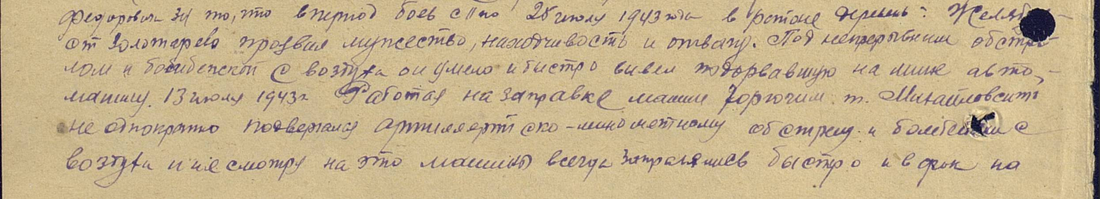 Федорович за то, что в период боев с 11 по 28 июля 1943 года в районе деревень:
от Золотарево проявил мужество, находчивость и отвагу. Под непрерывным обстре
лом и бомбежкой с воздуха он умело и быстро вывел подорвавшую на мине авто-
машину. 13 июля 1943г Работая на заправке машин горючим т. Михайловский
неоднократно подвергался артиллерийско-минометному обстрелу и бомбежки с
воздуха и не смотря на это машины всегда заправлялись быстро и в срок на